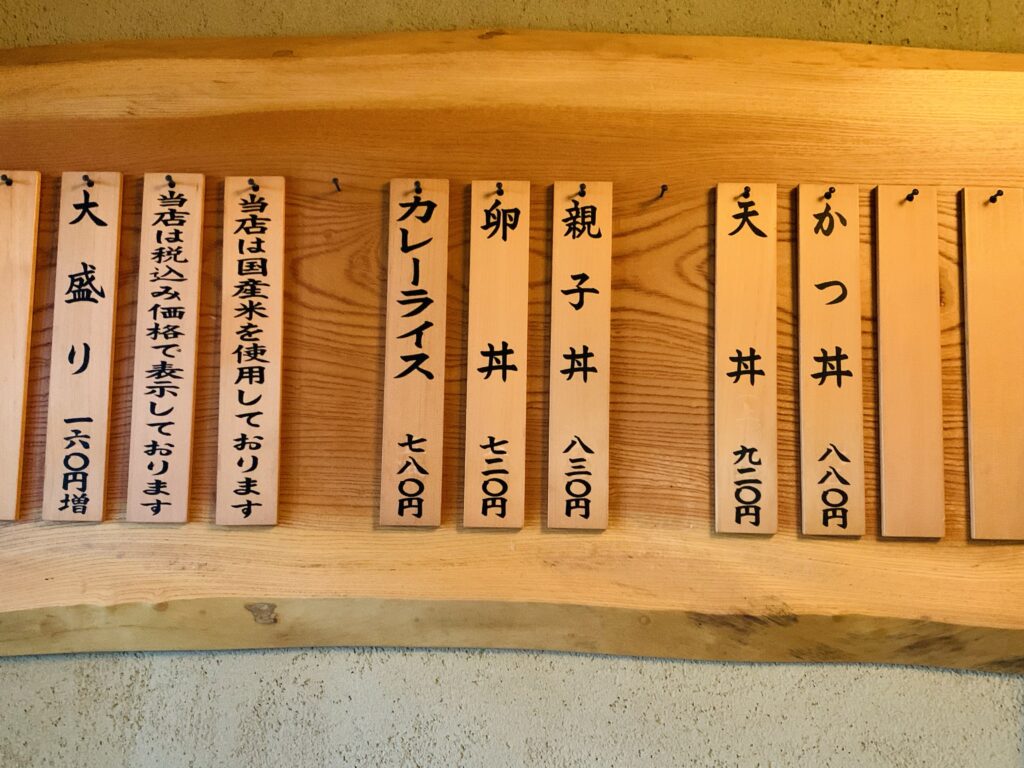 かつ丼 八八〇円
天丼 九二〇円
親子丼 八三〇円
卵丼 七二〇円
カレーライス 七八〇円
当店は国産米を使用しております
当店は税込み価格で表示しております
大盛り 一六〇円増